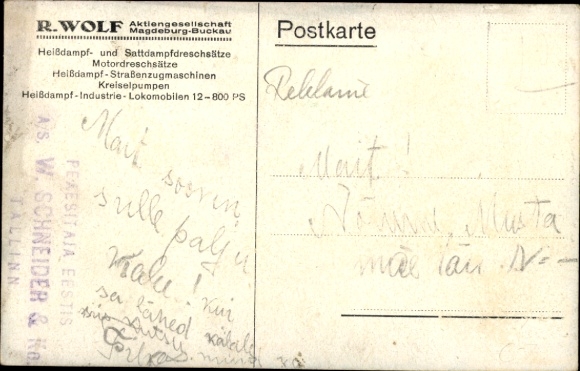 R. WOLF Aktiengesellschaft
Magdeburg-Buckau
Heißdampf- und Sattdampfdreschsätze
Motordreschsätze
Heißdampf-Straßenzugmaschinen
Kreiselpumpen
Heißdampf-Industrie-Lokomobilen 12–800 PS
PEAESITAJA EESTIS
A/S. W. SCHNEIDER & Ko.
TALLINN
Mait soovin
sulle palju
Kui
sa lähed
Postkarte
Reklame
Mait!
Nõmme, Musta
mäe tän N=